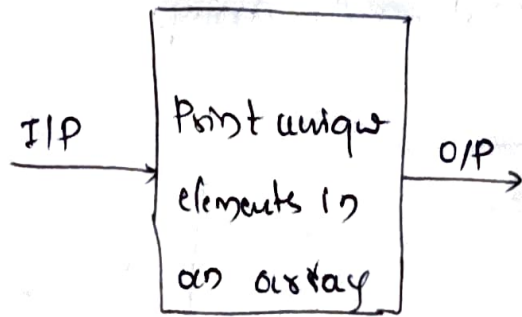 I/P
Print unique
elements in
an array
O/P